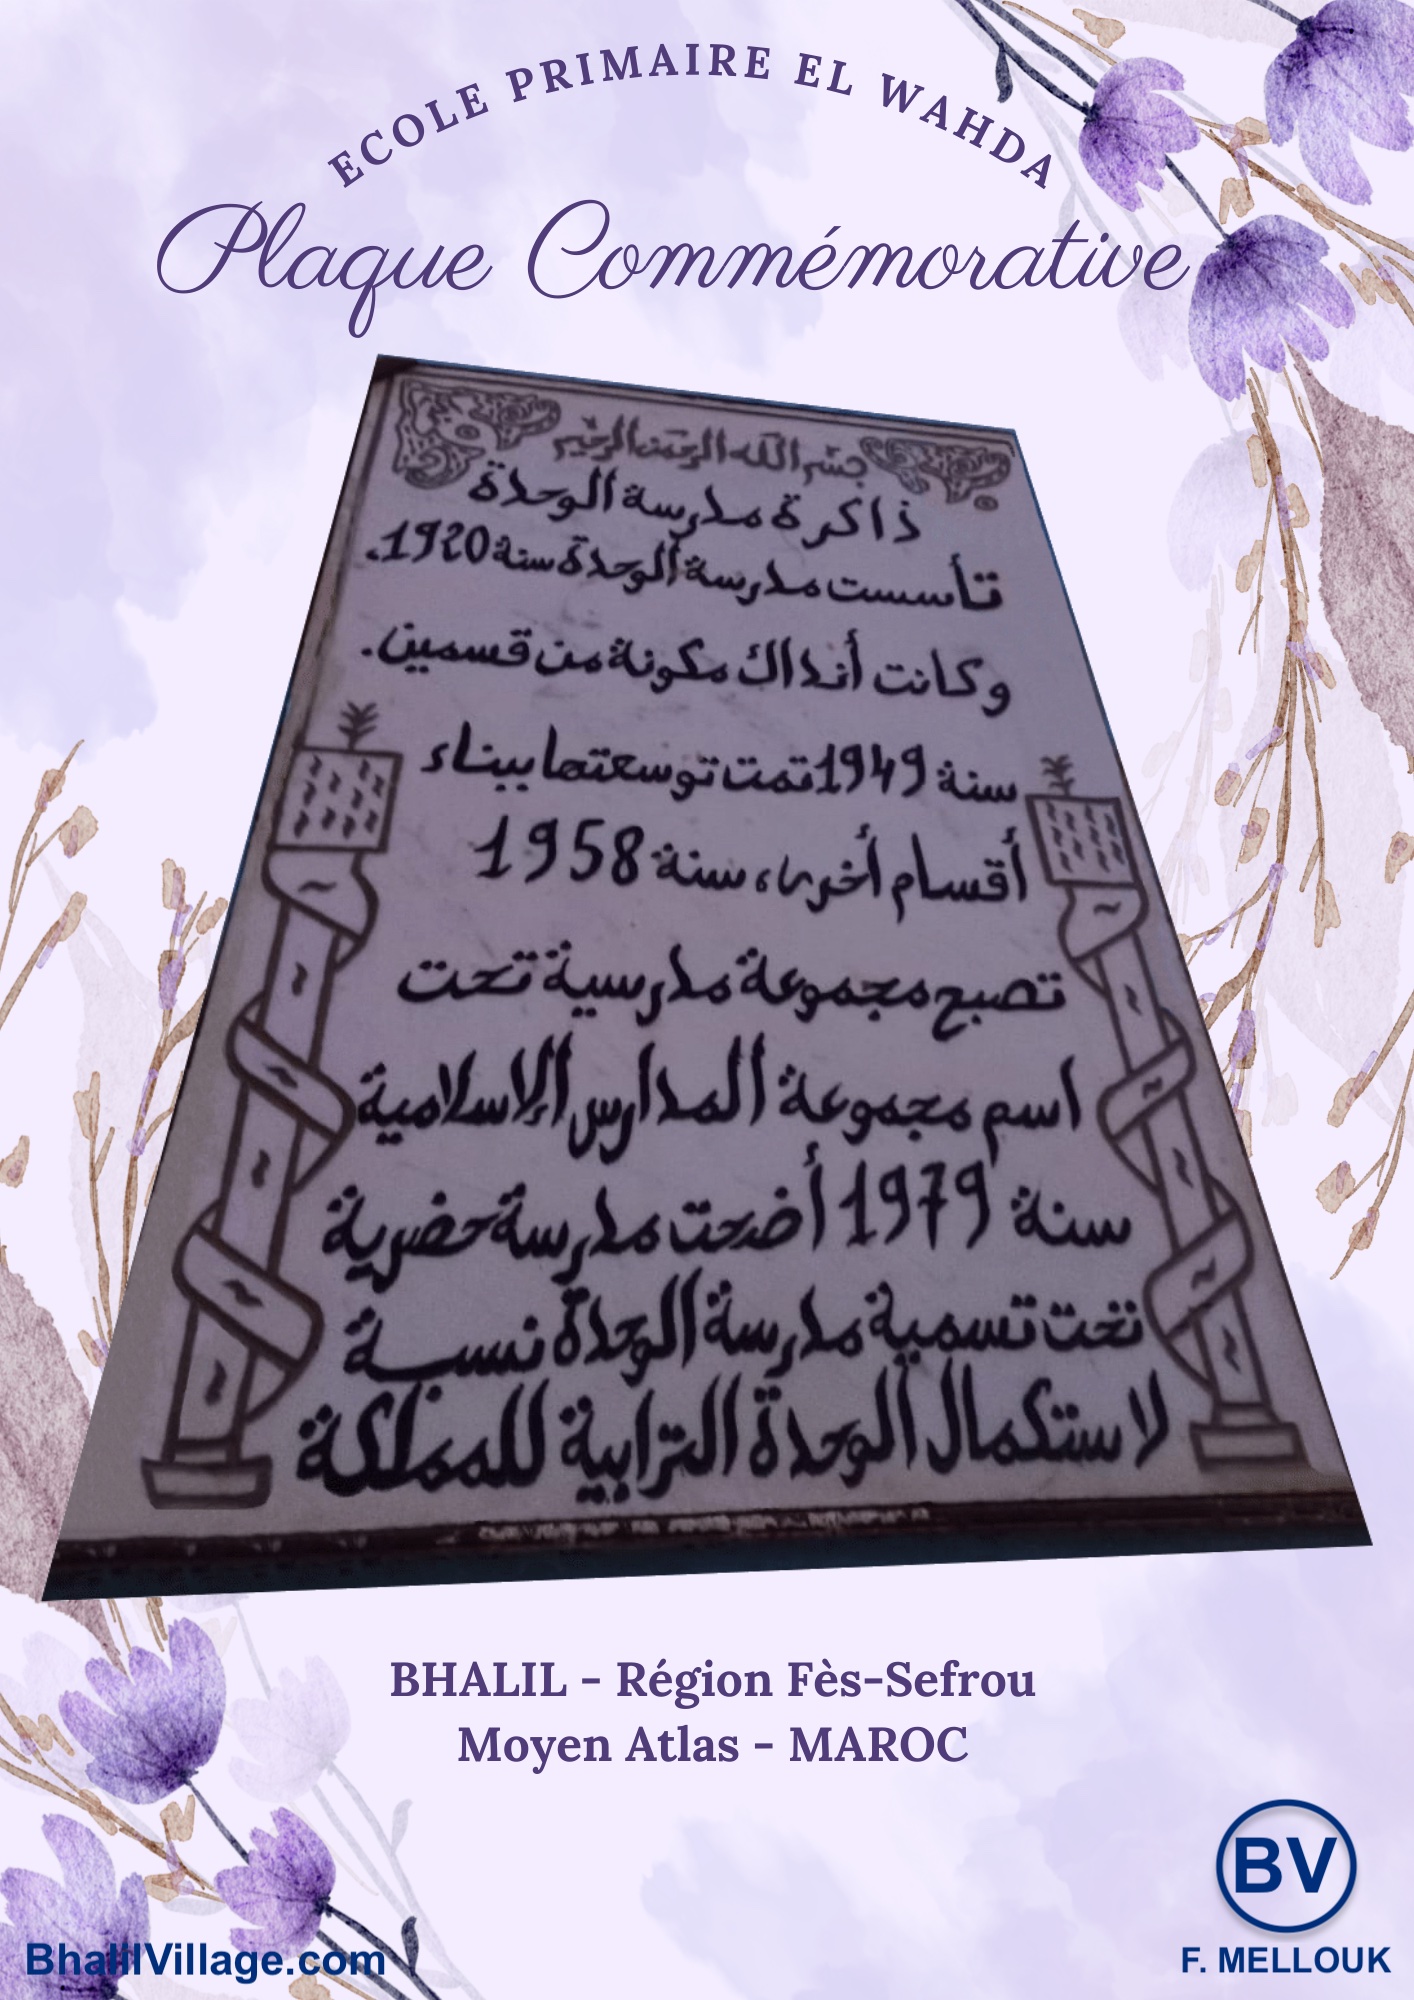 ECOLE PRIMAIRE EL WAHDA
Plaque Commémorative
بسم الله الرحمن الرحيم
ذاكرة مدرسة الوحدة
تأسست مدرسة الوحدة سنة 1920.
وكانت أنذاك مكونة من قسمين.
سنة 1949 تمت توسعتها ببناء
أقسام أخرى، سنة 1958
تصبح مجموعة مدرسية تحت
اسم مجموعة المدارس الإسلامية
سنة 1979 أضحت مدرسة حضرية
تحت تسمية مدرسة الوحدة نسبة
لاستكمال الوحدة الترابية للمملكة
BHALIL - Région Fès-Sefrou
Moyen Atlas - MAROC
BV
BhalilVillage.com
F. MELLOUK